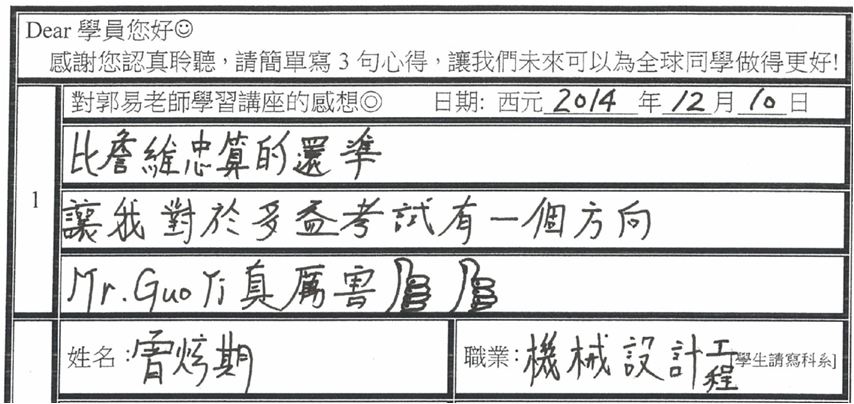 Dear 學員您好☺
感謝您認真聆聽,請簡單寫 3 句心得,讓我們未來可以為全球同學做得更好!
1
對郭易老師學習講座的感想◎ 日期: 西元 2014 年 12 月 10 日
比詹維忠算的還準
讓我對於多益考試有一個方向
Mr. Guo Yi 真厲害👍👍
姓名:曾炫期
職業:機械設計工程 [學生請寫科系]